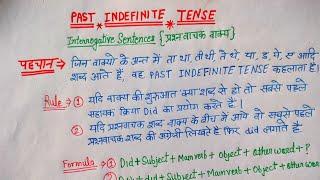 PAST INDEFINITE TENSE
Interrogative Sentences {प्रश्नवाचक वाक्य}
पहचान → जिन वाक्यो के अन्त में ता था, ती थी, ते थे, या, ई, ये, ए आदि
शब्द आते हैं, वह PAST INDEFINITE TENSE कहलाता है।
Rule → ① यदि वाक्य की शुरुआत क्या शब्द से हो तो सबसे पहले
सहायक क्रिया Did का प्रयोग करते हैं।
② यदि प्रश्नवाचक शब्द वाक्य के बीच में आये तो सबसे पहले
प्रश्नवाचक शब्द की अंग्रेजी लिखते हैं फिर did लगाते हैं
Formula → ① Did + Subject + Main verb + Object + Other word + ?
+ Did + Subject + Main verb + Object + Other